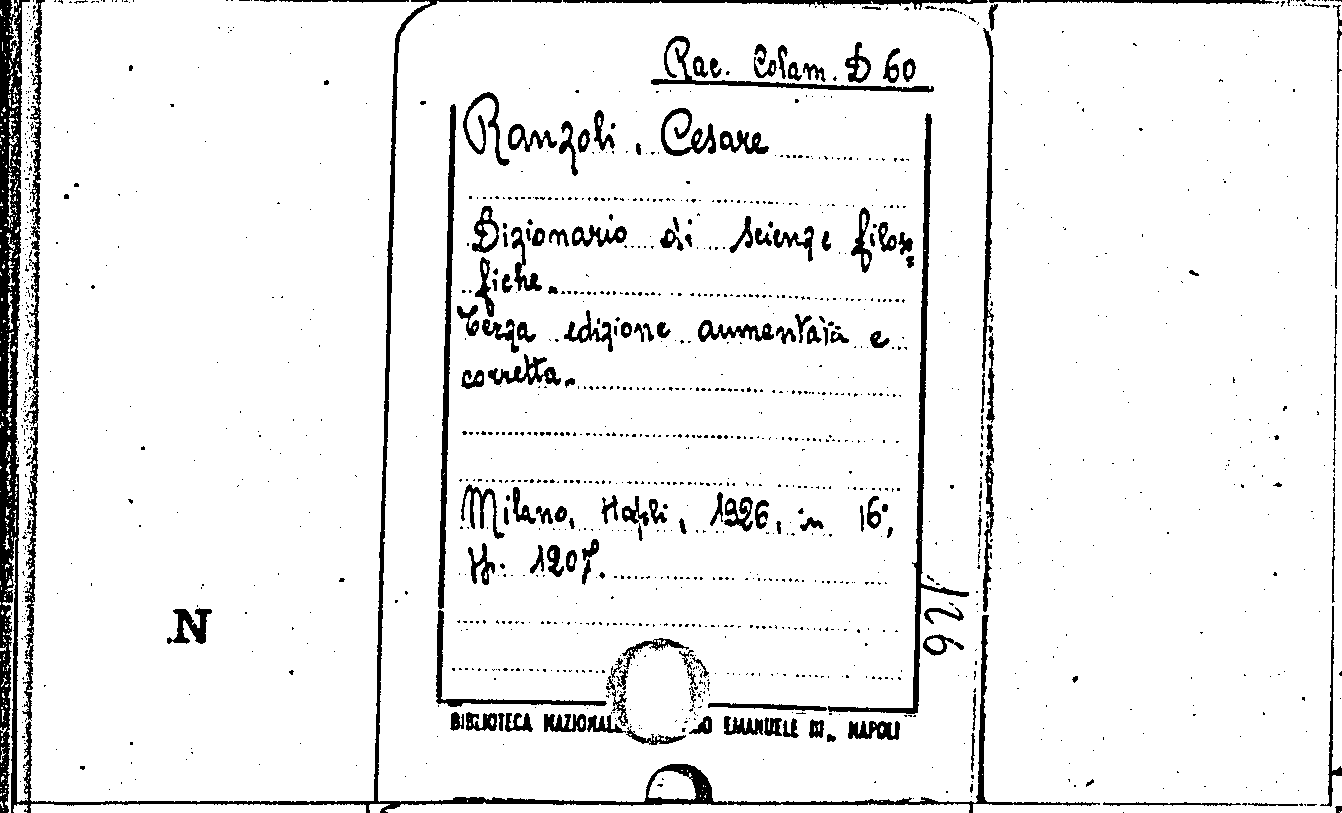 Rac. Colam. D 60
Ranzoli, Cesare
Dizionario di scienze filoso=
fiche.
Terza edizione aumentata e
corretta.
Milano, Hoepli, 1926, in 16°,
pp. 1207.
126
N
BIBLIOTECA NAZIONALE EMANUELE III, NAPOLI